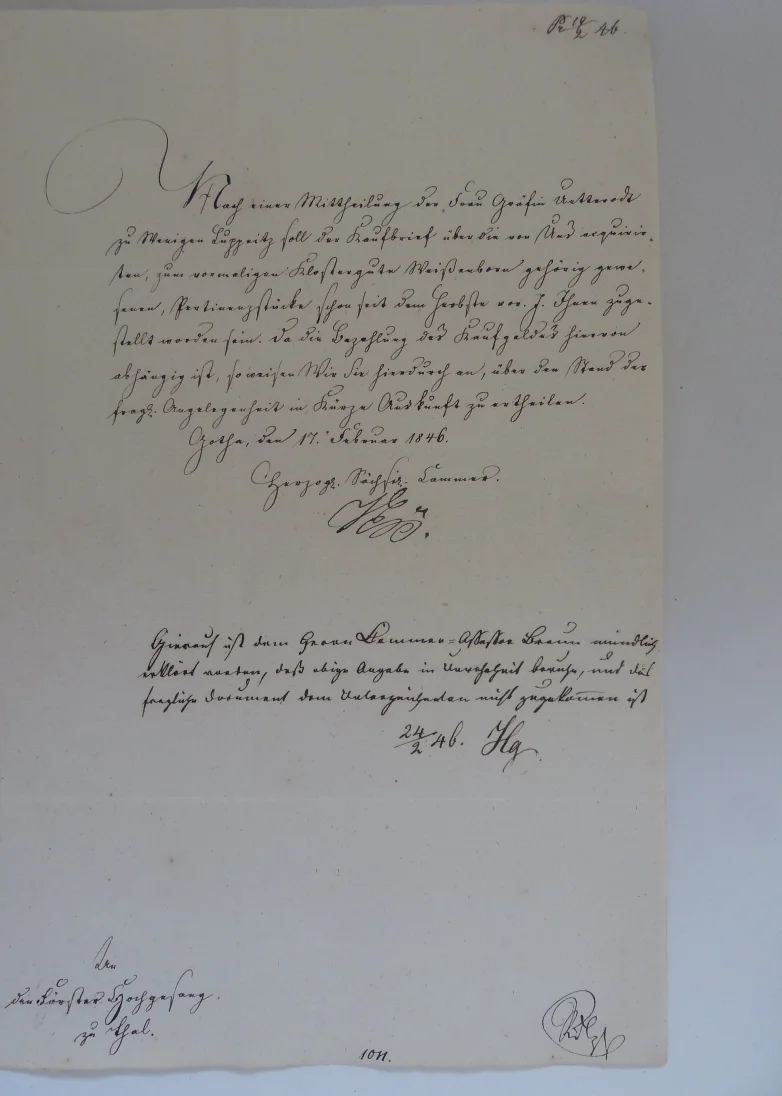 Pr 19/2 46.
Nach einer Mittheilung der Frau Gräfin Uetterodt
zu Wenigen Lupnitz soll der Kaufbrief über die von Uns acquirir-
ten, zum vormaligen Klostergute Weißenborn gehörig gewe-
senen, Pertinenzstücke schon seit dem Herbste vor. J. Ihnen zuge-
stellt worden sein. Da die Bezahlung des Kaufgeldes hiervon
abhängig ist, so weisen Wir Sie hierdurch an, über den Stand der
fragl. Angelegenheit in Kürze Auskunft zu ertheilen.
Gotha, den 17. Februar 1846.
Herzogl. Sächsis. Cammer.
Hierauf ist dem Herrn Kammer-Assessor Braun mündlich
erklärt worden, daß obige Angabe in Unwahrheit beruhe, und das
fragliche Document dem Unterzeichneten nicht zugekommen ist
24/2 46. Hg
An
den Förster Hochgesang.
zu Thal.
1011.